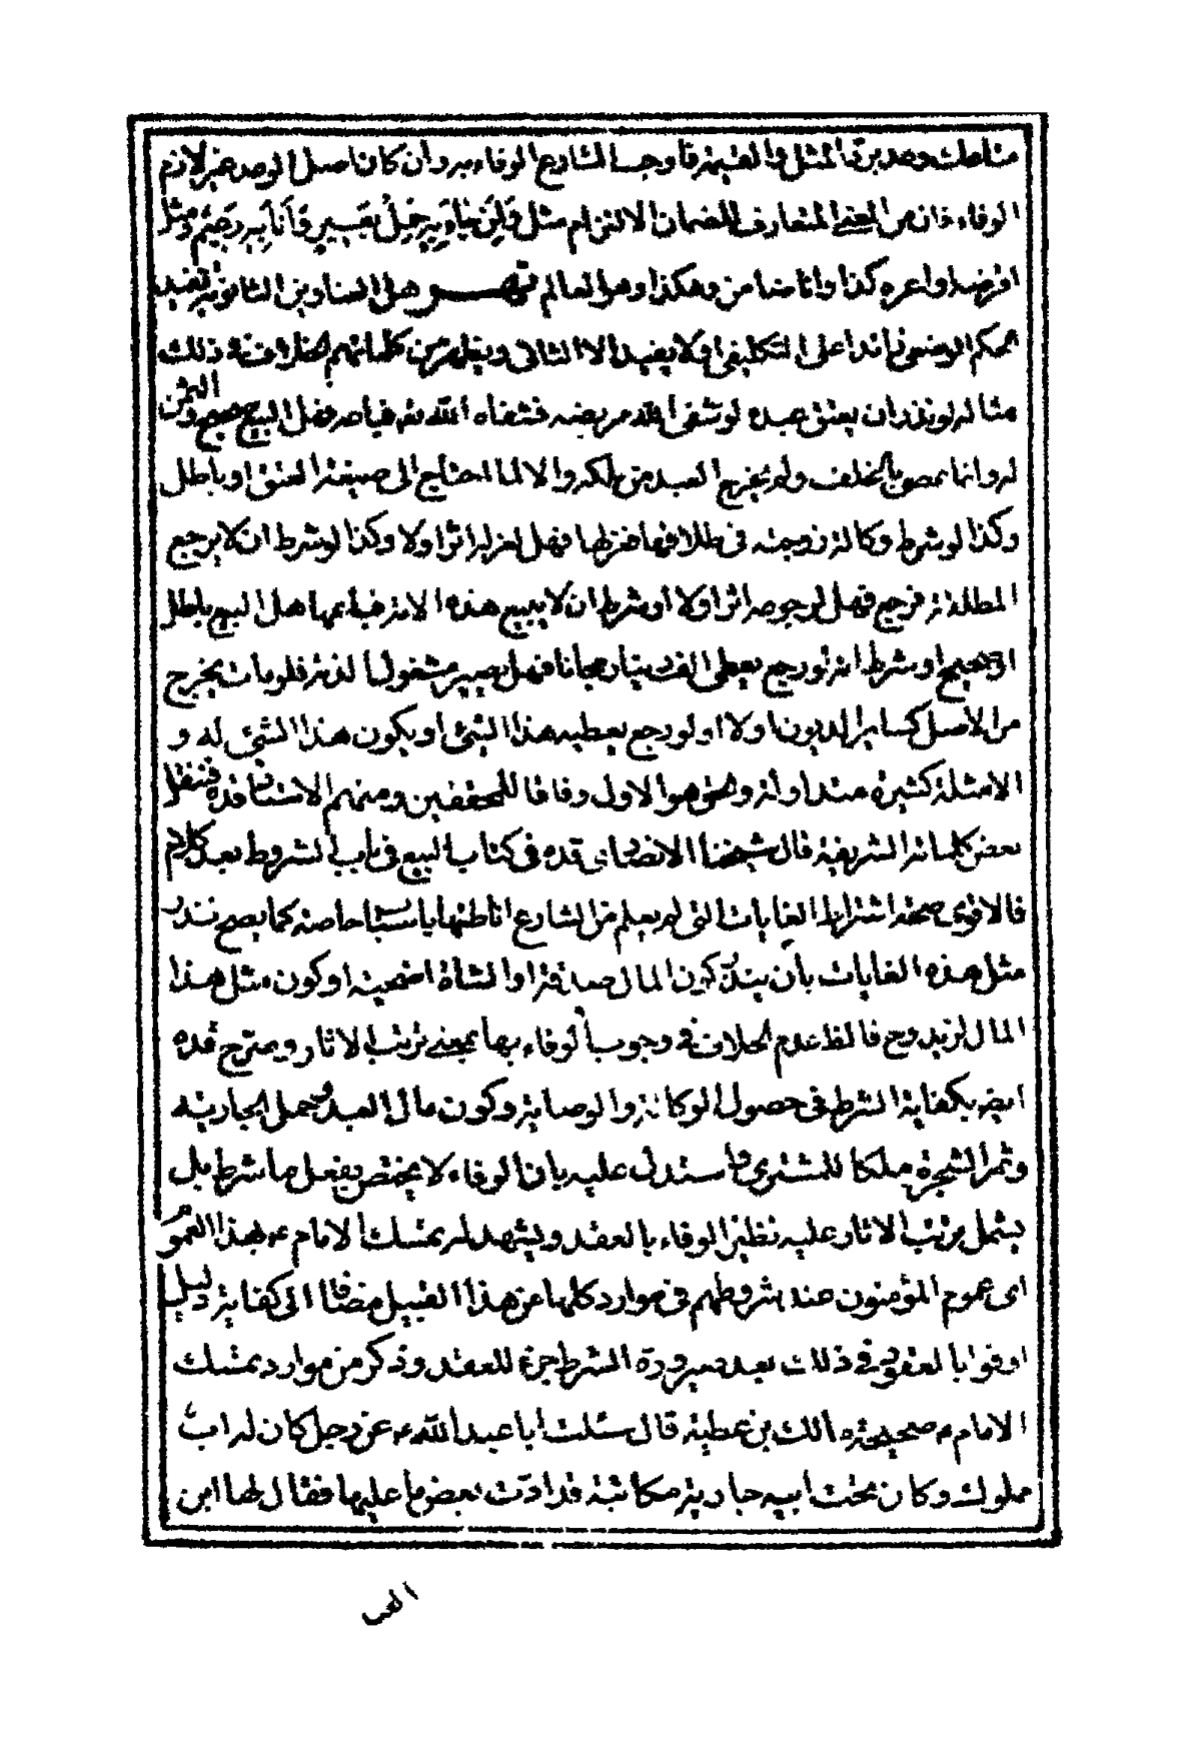 متاعك وعد بردّ المثل او القيمة فاوجب الشارع الوفاء به وان كان اصل الوعد غير لازم
الوفاء فان من المعنى المتعارف للضمان الالتزام مثل ولمن جاء به حمل بعير وانا به زعيم ومثل
اقرضه او اعره كذا وانا ضامن وهكذا وهو العالم تهـــر هل العناوين الثانوية تفيد
الحكم الوضعى زائدا على التكليفى او لا يفيد الا الثانى ويظهر من كلماتهم الخلاف فى ذلك
مثاله لو نذر ان يعتق عبده لو شفى الله مريضه فشفاه الله ثم باعه فهل البيع صحيح والثمن
له وانما يعصى بالخلف ولم يخرج العبد من ملكه والا لما احتاج الى صيغة العتق او باطل
وكذا لو شرط وكالة زوجته فى طلاقها فعزلها فهل لعزله اثر او لا وكذا لو شرط ان لا يرجع
المطلقة فرجع فهل لرجوعه اثر او لا او شرط ان لا يبيع هذه الامة فباعها هل البيع باطل
او صحيح او شرط انه لو رجع يعطى الف دينار مجانا فهل يصير مشغولا لذمته فلو مات يخرج
من الاصل كسائر الديون او لا او لو رجع يعطيه هذا الشئ او يكون هذا الشئ له و
الامثلة كثيرة متداولة والحق هو الاول وفاقا للمحققين ومنهم الاستاد قده فننقل
بعض كلماته الشريفة قال شيخنا الانصارى قده فى كتاب البيع فى باب الشروط بعد كلام
فالاقوى صحة اشتراط الغايات التى لم يعلم من الشارع اناطتها باسباب خاصة كما يصح نذر
مثل هذه الغايات بأن ينذر كون المال صدقة او الشاة اضحية او كون مثل هذا
المال لزيد وح فالظ عدم الخلاف فى وجوب الوفاء بها بمعنى ترتب الاثار ويصرح قده
ايضا بكفاية الشرط فى حصول الوكالة والوصاية وكون مال العبد وحمل الجارية
وثمر الشجرة ملكا للمشترى واستدل عليه بان الوفاء لا يختص بفعل ما شرط بل
يشمل ترتب الاثار عليه نظير الوفاء بالعقد ويشهد له تمسك الامام ع بهذا العموم
اى عموم المؤمنون عند شروطهم فى موارد كلها من هذا القبيل مضافا الى كفاية دليل
اوفوا بالعقود فى ذلك بعد صيرورة الشرط جزء للعقد وذكر من موارد تمسك
الامام ع صحيحة مالك بن عطية قال سئلت ابا عبد الله ع عن رجل كان له اب
مملوك وكان تحت ابيه جارية مكاتبة قد ادت بعض ما عليها فقال لها ابن
العب